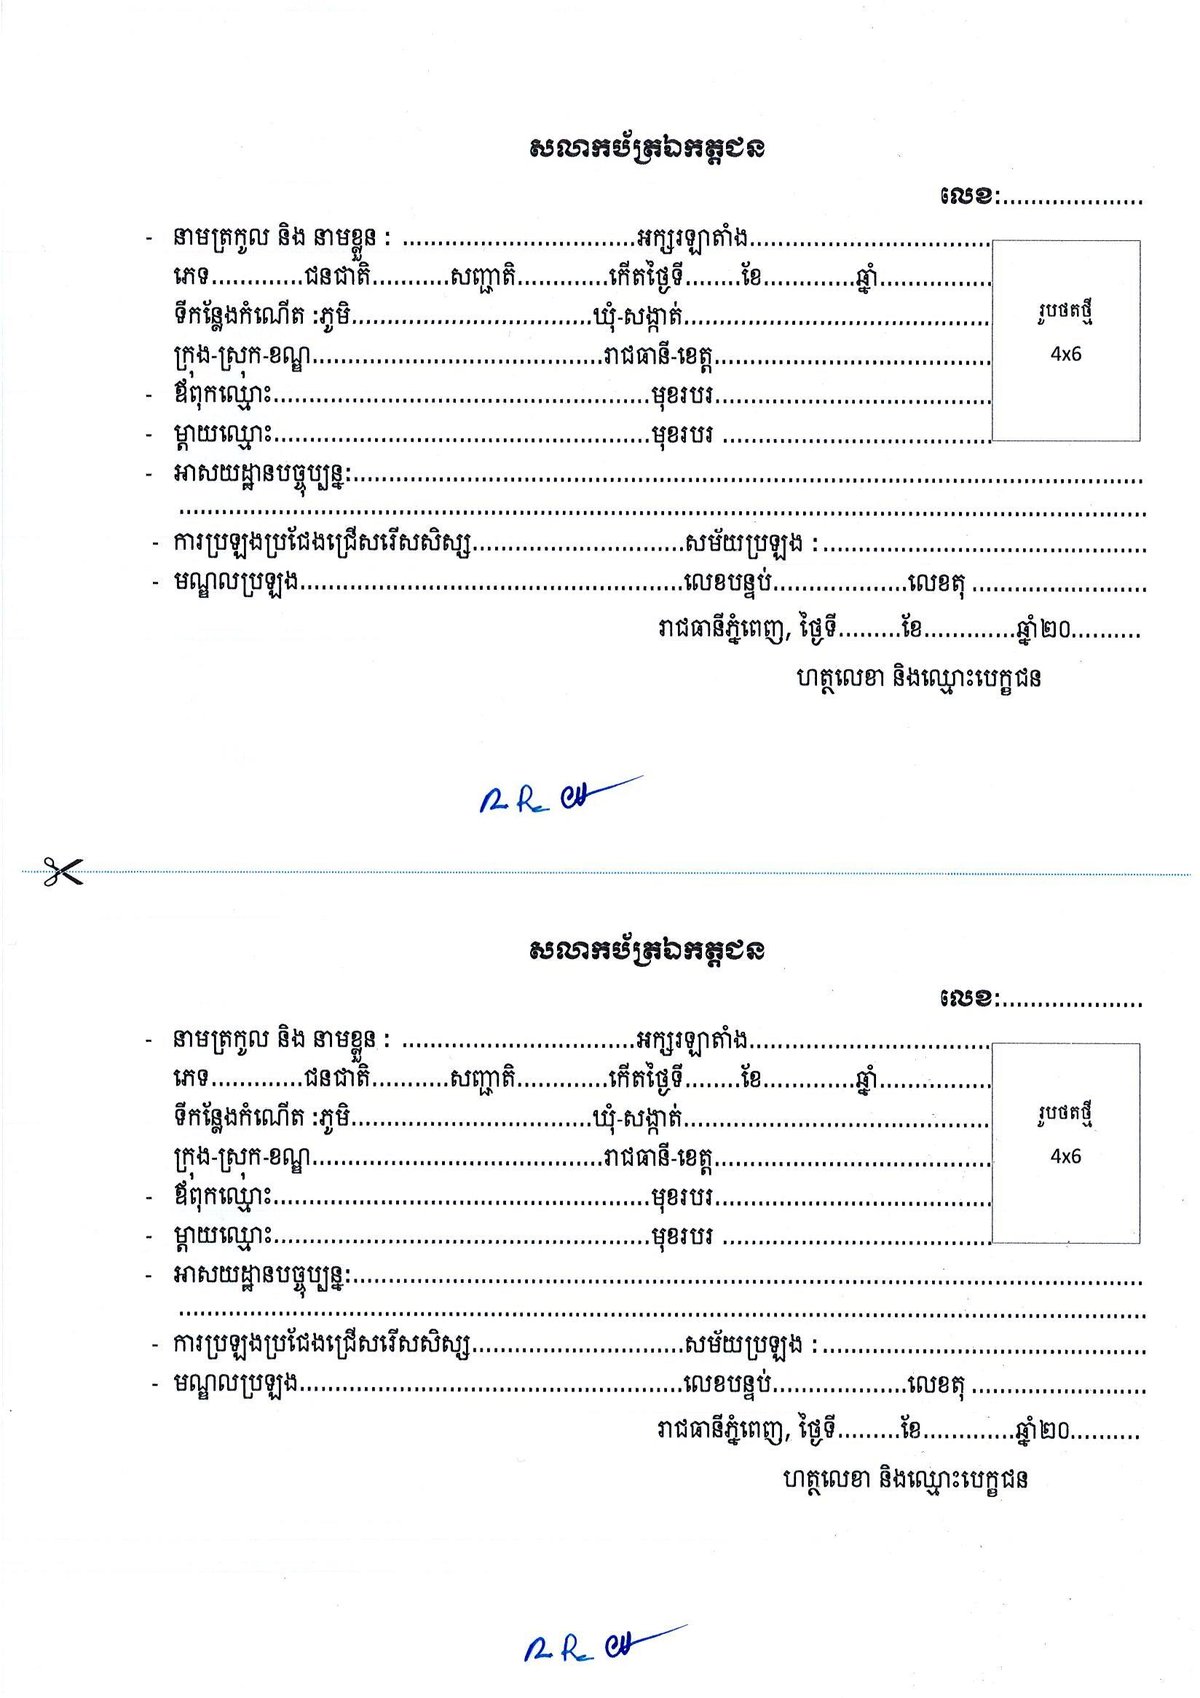 សលាកប័ត្រឯកត្តជន
លេខ:....................
- នាមត្រកូល និង នាមខ្លួន : .................................អក្សរឡាតាំង..................................
ភេទ.............ជនជាតិ...........សញ្ជាតិ.............កើតថ្ងៃទី........ខែ.............ឆ្នាំ................
ទីកន្លែងកំណើត :ភូមិ..................................ឃុំ-សង្កាត់............................................
រូបថតថ្មី
ក្រុង-ស្រុក-ខណ្ឌ.........................................រាជធានី-ខេត្ត.......................................
4x6
- ឪពុកឈ្មោះ......................................................មុខរបរ.......................................
- ម្តាយឈ្មោះ......................................................មុខរបរ ......................................
- អាសយដ្ឋានបច្ចុប្បន្ន:................................................................................................................
..........................................................................................................................................
- ការប្រឡងប្រជែងជ្រើសរើសសិស្ស..............................សម័យប្រឡង :..............................................
- មណ្ឌលប្រឡង......................................................លេខបន្ទប់...................លេខតុ .........................
រាជធានីភ្នំពេញ, ថ្ងៃទី.........ខែ.............ឆ្នាំ២០..........
ហត្ថលេខា និងឈ្មោះបេក្ខជន
សលាកប័ត្រឯកត្តជន
លេខ:....................
- នាមត្រកូល និង នាមខ្លួន : .................................អក្សរឡាតាំង..................................
ភេទ.............ជនជាតិ...........សញ្ជាតិ.............កើតថ្ងៃទី........ខែ.............ឆ្នាំ................
ទីកន្លែងកំណើត :ភូមិ..................................ឃុំ-សង្កាត់............................................
រូបថតថ្មី
ក្រុង-ស្រុក-ខណ្ឌ.........................................រាជធានី-ខេត្ត.......................................
4x6
- ឪពុកឈ្មោះ......................................................មុខរបរ.......................................
- ម្តាយឈ្មោះ......................................................មុខរបរ ......................................
- អាសយដ្ឋានបច្ចុប្បន្ន:................................................................................................................
..........................................................................................................................................
- ការប្រឡងប្រជែងជ្រើសរើសសិស្ស..............................សម័យប្រឡង :..............................................
- មណ្ឌលប្រឡង......................................................លេខបន្ទប់...................លេខតុ .........................
រាជធានីភ្នំពេញ, ថ្ងៃទី.........ខែ.............ឆ្នាំ២០..........
ហត្ថលេខា និងឈ្មោះបេក្ខជន